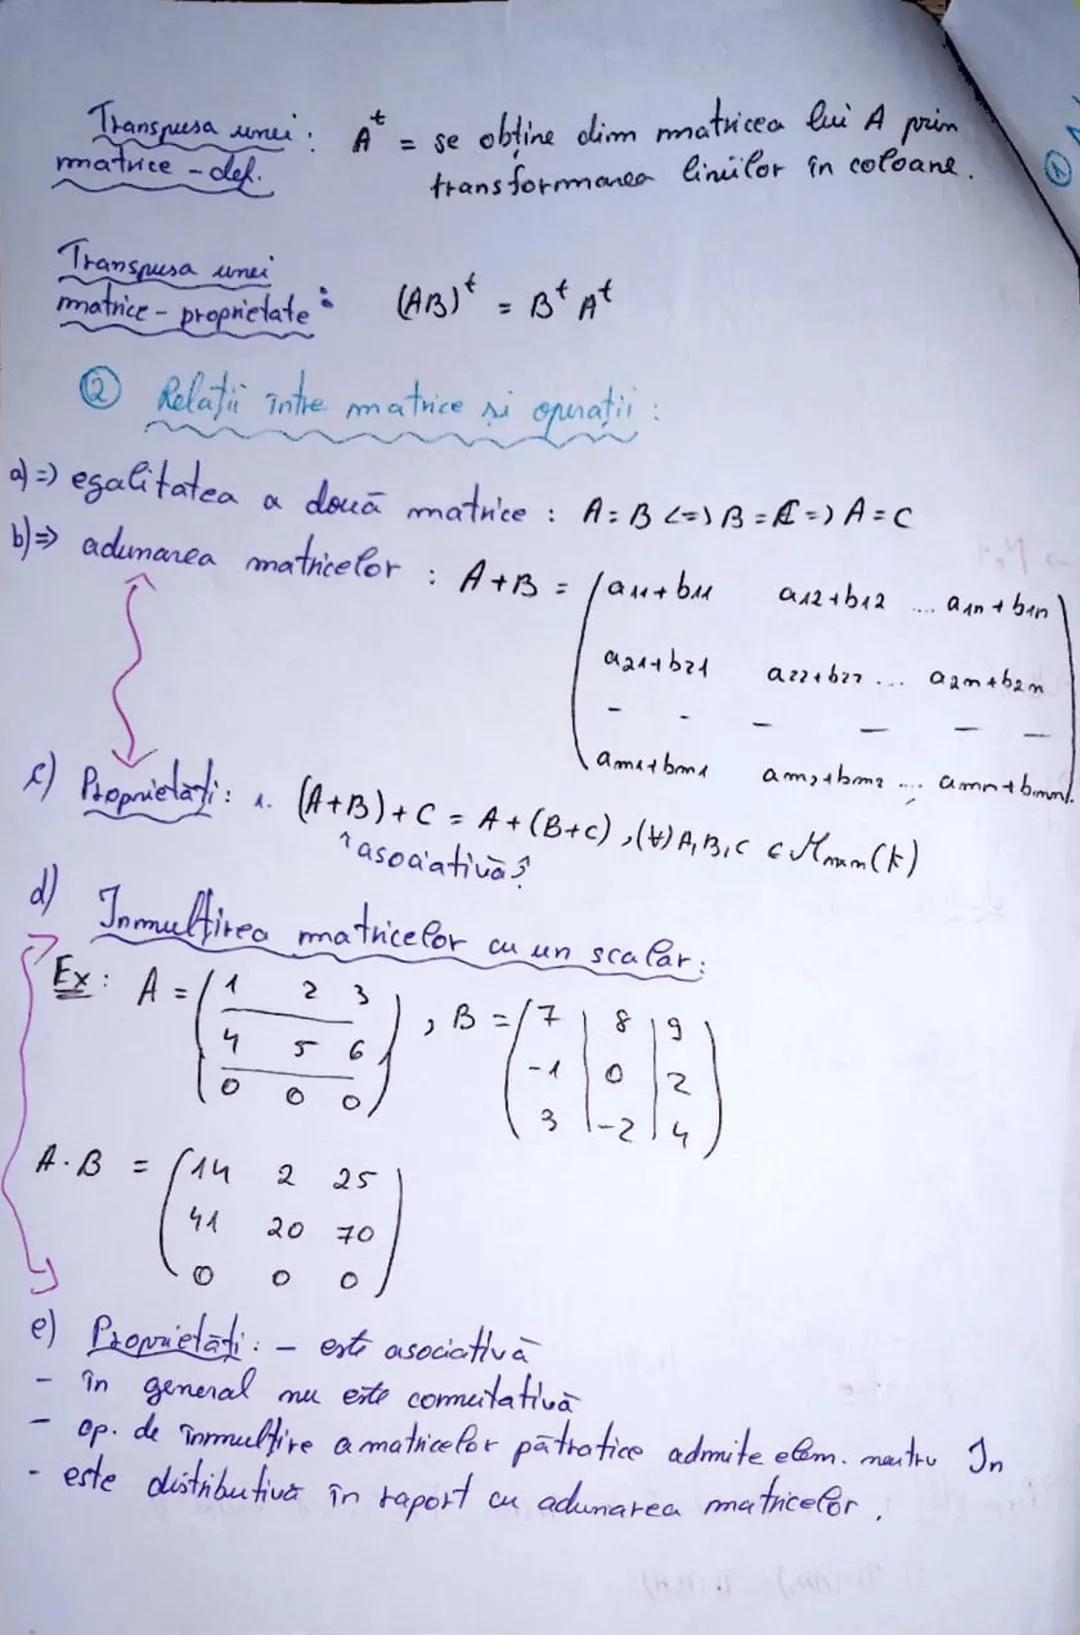 Transpusa unei : Aᵗ = se obține din matricea lui A prin
matrice - def. transformarea liniilor în coloane.
Transpusa unei
matrice - proprietate : (AB)ᵗ = Bᵗ Aᵗ
② Relații între matrice și operații :
a) => egalitatea a două matrice : A = B <=> B = C => A = C
b) => adunarea matricelor : A + B = ( a11 + b11 a12 + b12 .... a1n + b1n )
a21 + b21 a22 + b22 ... a2n + b2n
- - - - - -
am1 + bm1 am2 + bm2 .... amn + bmn
c) Proprietăți : 1. (A+B) + C = A + (B+C) , (∀) A, B, C ∈ Mm,n(K)
asociativă
d) Înmulțirea matricelor cu un scalar :
Ex : A = ( 1 2 3 ) , B = ( 7 | 8 | 9 )
4 5 6 -1 | 0 | 2
0 0 0 3 | -2 | 4
A · B = ( 14 2 25 )
41 20 70
0 0 0
e) Proprietăți : - este asociativă
- în general nu este comutativă
- op. de înmulțire a matricelor pătratice admite elem. neutru In
- este distributivă în raport cu adunarea matricelor .